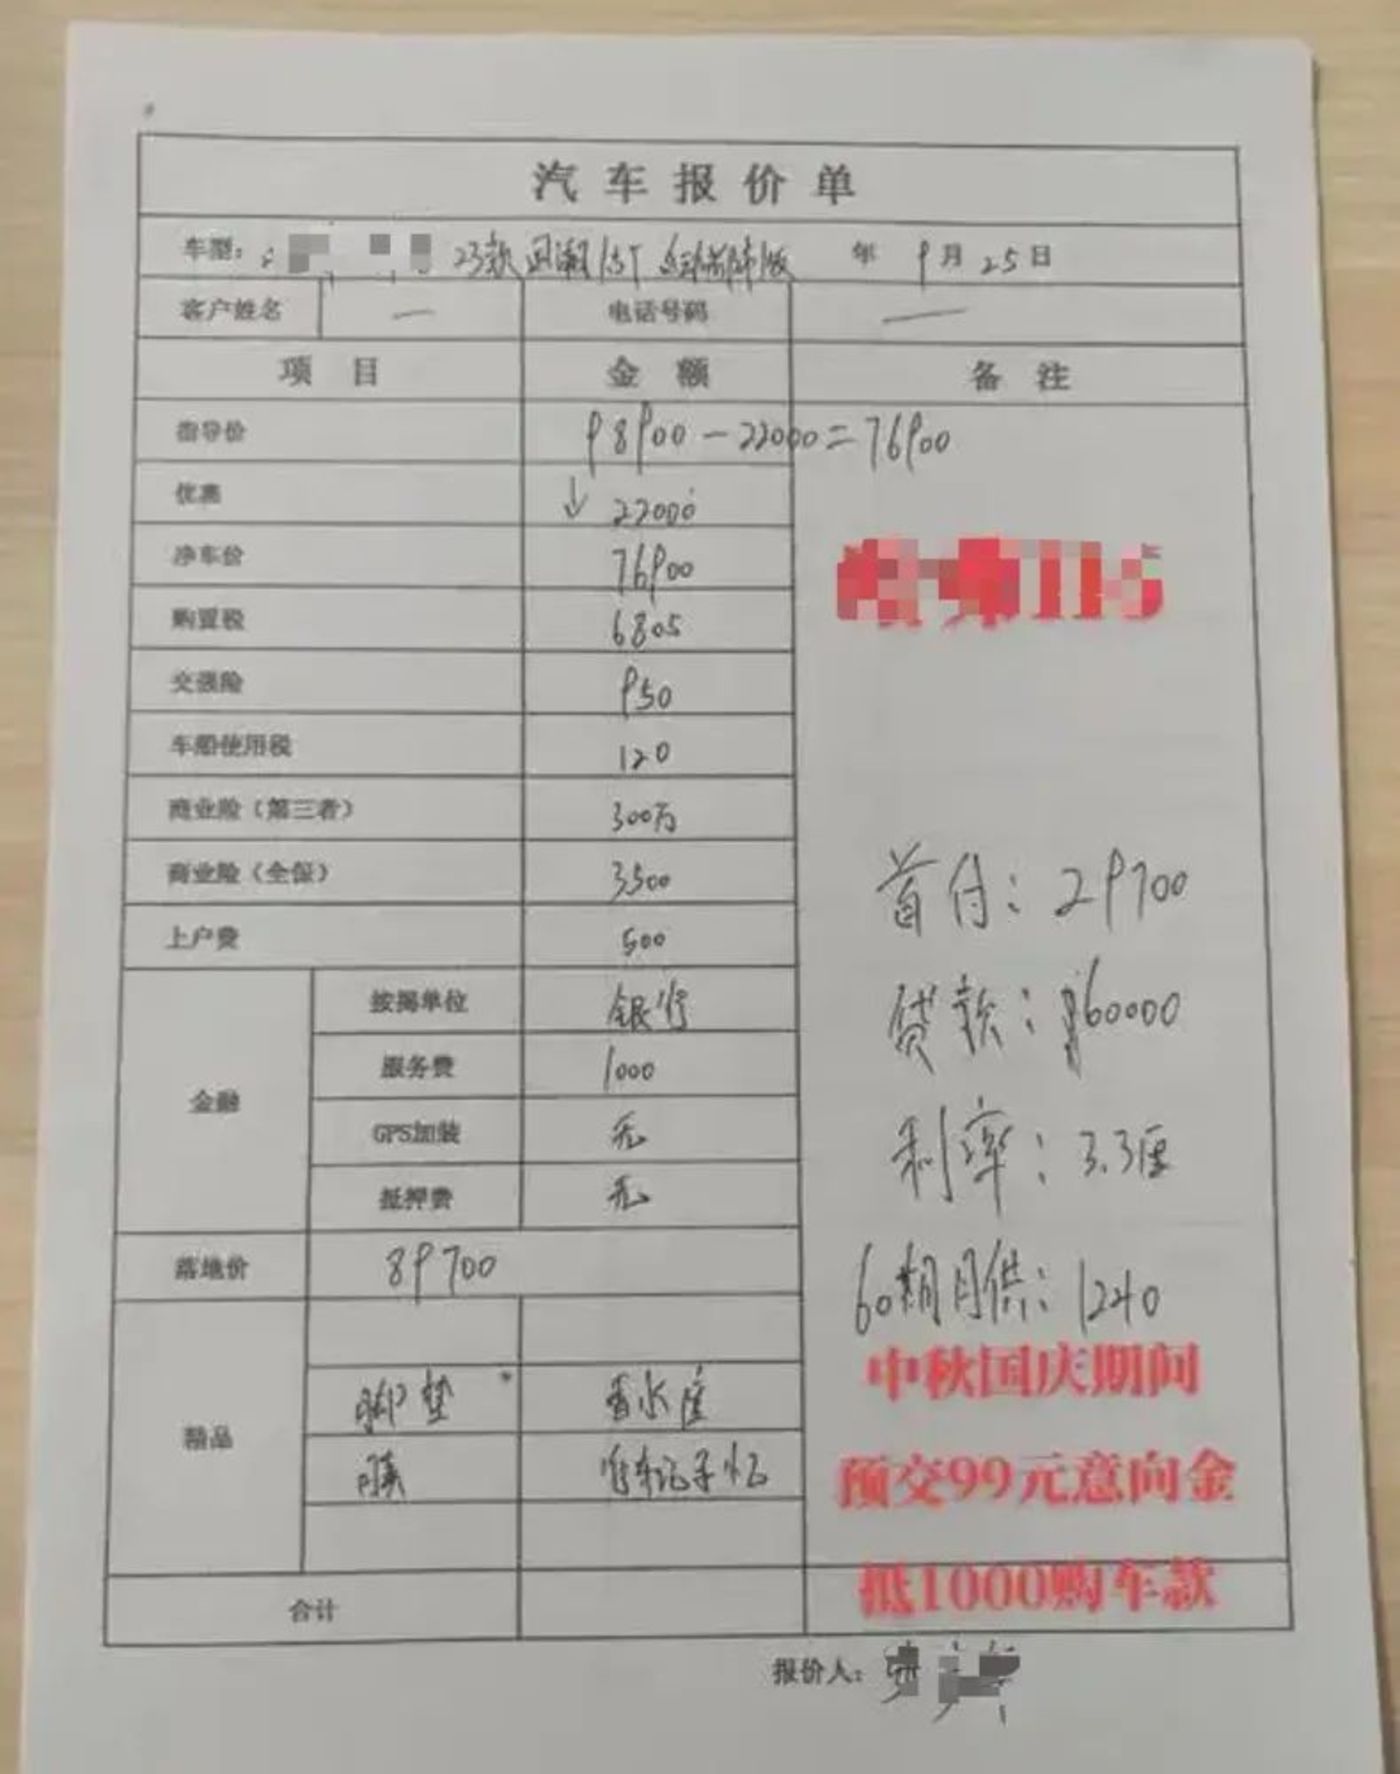 汽车报价单
车型: 23款 国潮 1.5T 年 9月25日
客户姓名 — 电话号码 —
项目 金额 备注
指导价 98900-22000=76900
优惠 ↓ 22000
净车价 76900
购置税 6805
交强险 950
车船使用税 120
商业险(第三者) 300万
商业险(全保) 3500
首付: 29700
上户费 500
金融 按揭单位 银行
贷款: 60000
服务费 1000
GPS加装 无
利率: 3.3厘
抵押费 无
落地价 89700
60期月供: 1240
中秋国庆期间
精品
脚垫 香水座
膜 行车记录仪
预交99元意向金
抵1000购车款
合计
报价人: